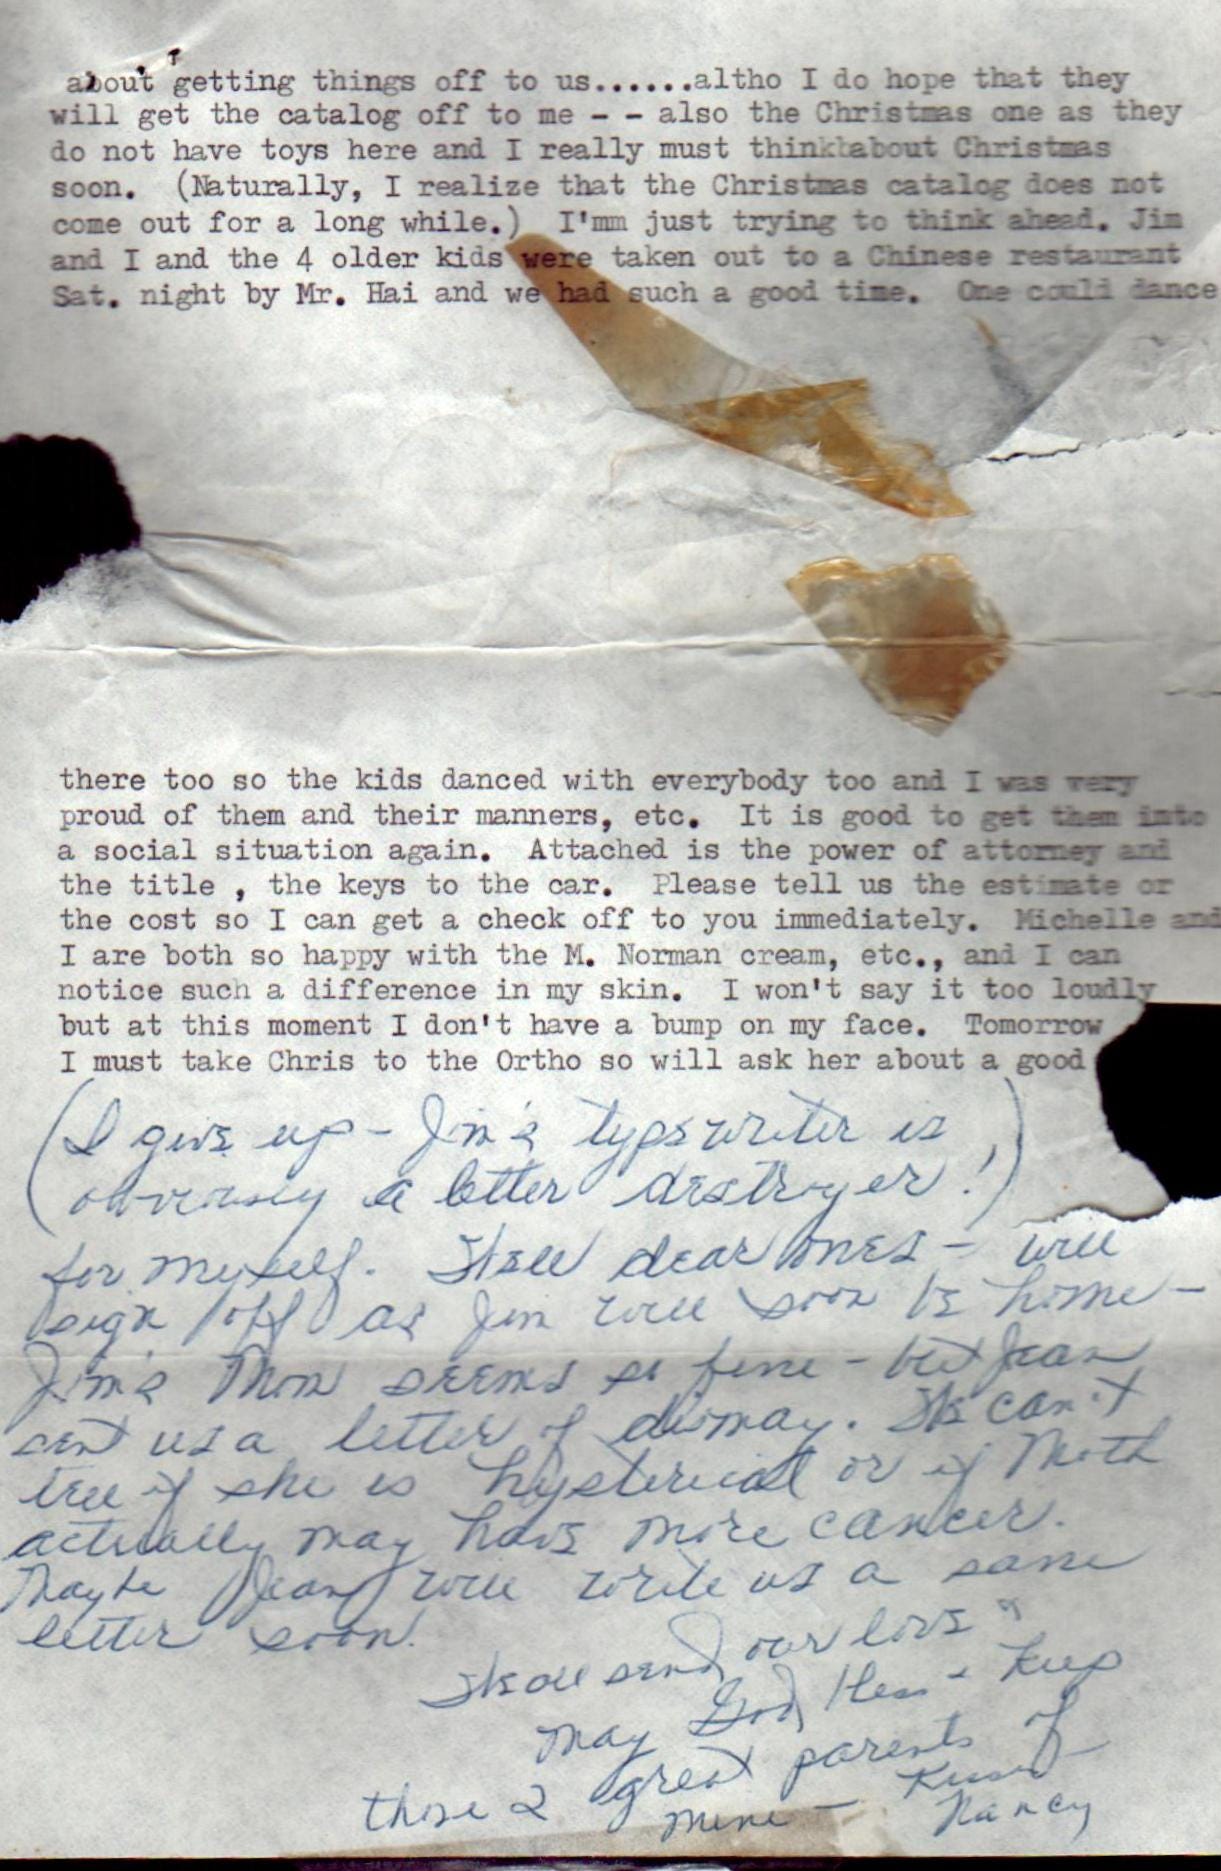 about getting things off to us......altho I do hope that they
will get the catalog off to me - - also the Christmas one as they
do not have toys here and I really must thinktabout Christmas
soon.  (Naturally, I realize that the Christmas catalog does not
come out for a long while.)  I'mm just trying to think ahead. Jim
and I and the 4 older kids were taken out to a Chinese restaurant
Sat. night by Mr. Hai and we had such a good time.  One could dance
there too so the kids danced with everybody too and I was very
proud of them and their manners, etc.  It is good to get them into
a social situation again.  Attached is the power of attorney and
the title , the keys to the car.  Please tell us the estimate or
the cost so I can get a check off to you immediately.  Michelle and
I are both so happy with the M. Norman cream, etc., and I can
notice such a difference in my skin.  I won't say it too loudly
but at this moment I don't have a bump on my face.  Tomorrow
I must take Chris to the Ortho so will ask her about a good
(I give up - Jim's typewriter is
obviously a letter destroyer!)
for myself. Well dear ones - will
sign off as Jim will soon be home -
Jim's Mom seems so fine - but Jean
sent us a letter of dismay. We can't
tell if she is hysterical or if Moth
actually may have more cancer.
Maybe Jean will write us a sane
letter soon.
We all send our love &
may God bless & keep
those 2 great parents of
mine - Kisses
Nancy